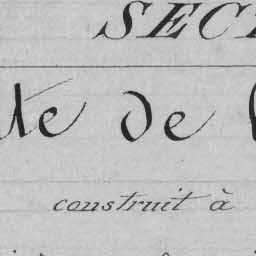 SEC
te de
construit à